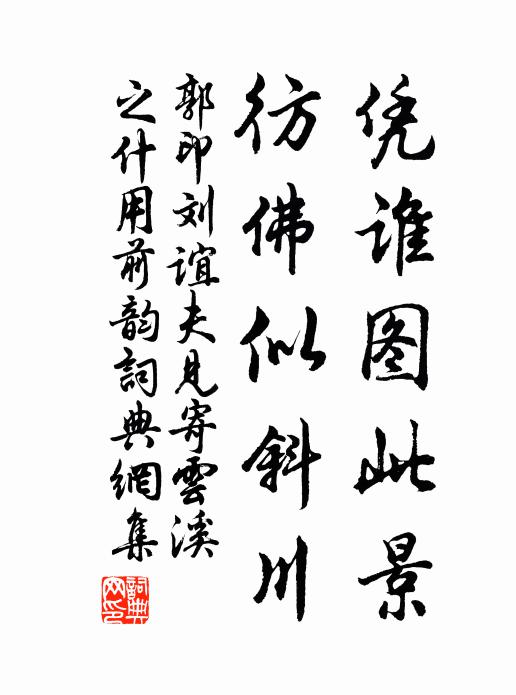 凭谁图此景
彷佛似斜川
郭印刘谊夫见寄雲溪
之什用前韵詞典網集
詞典网印